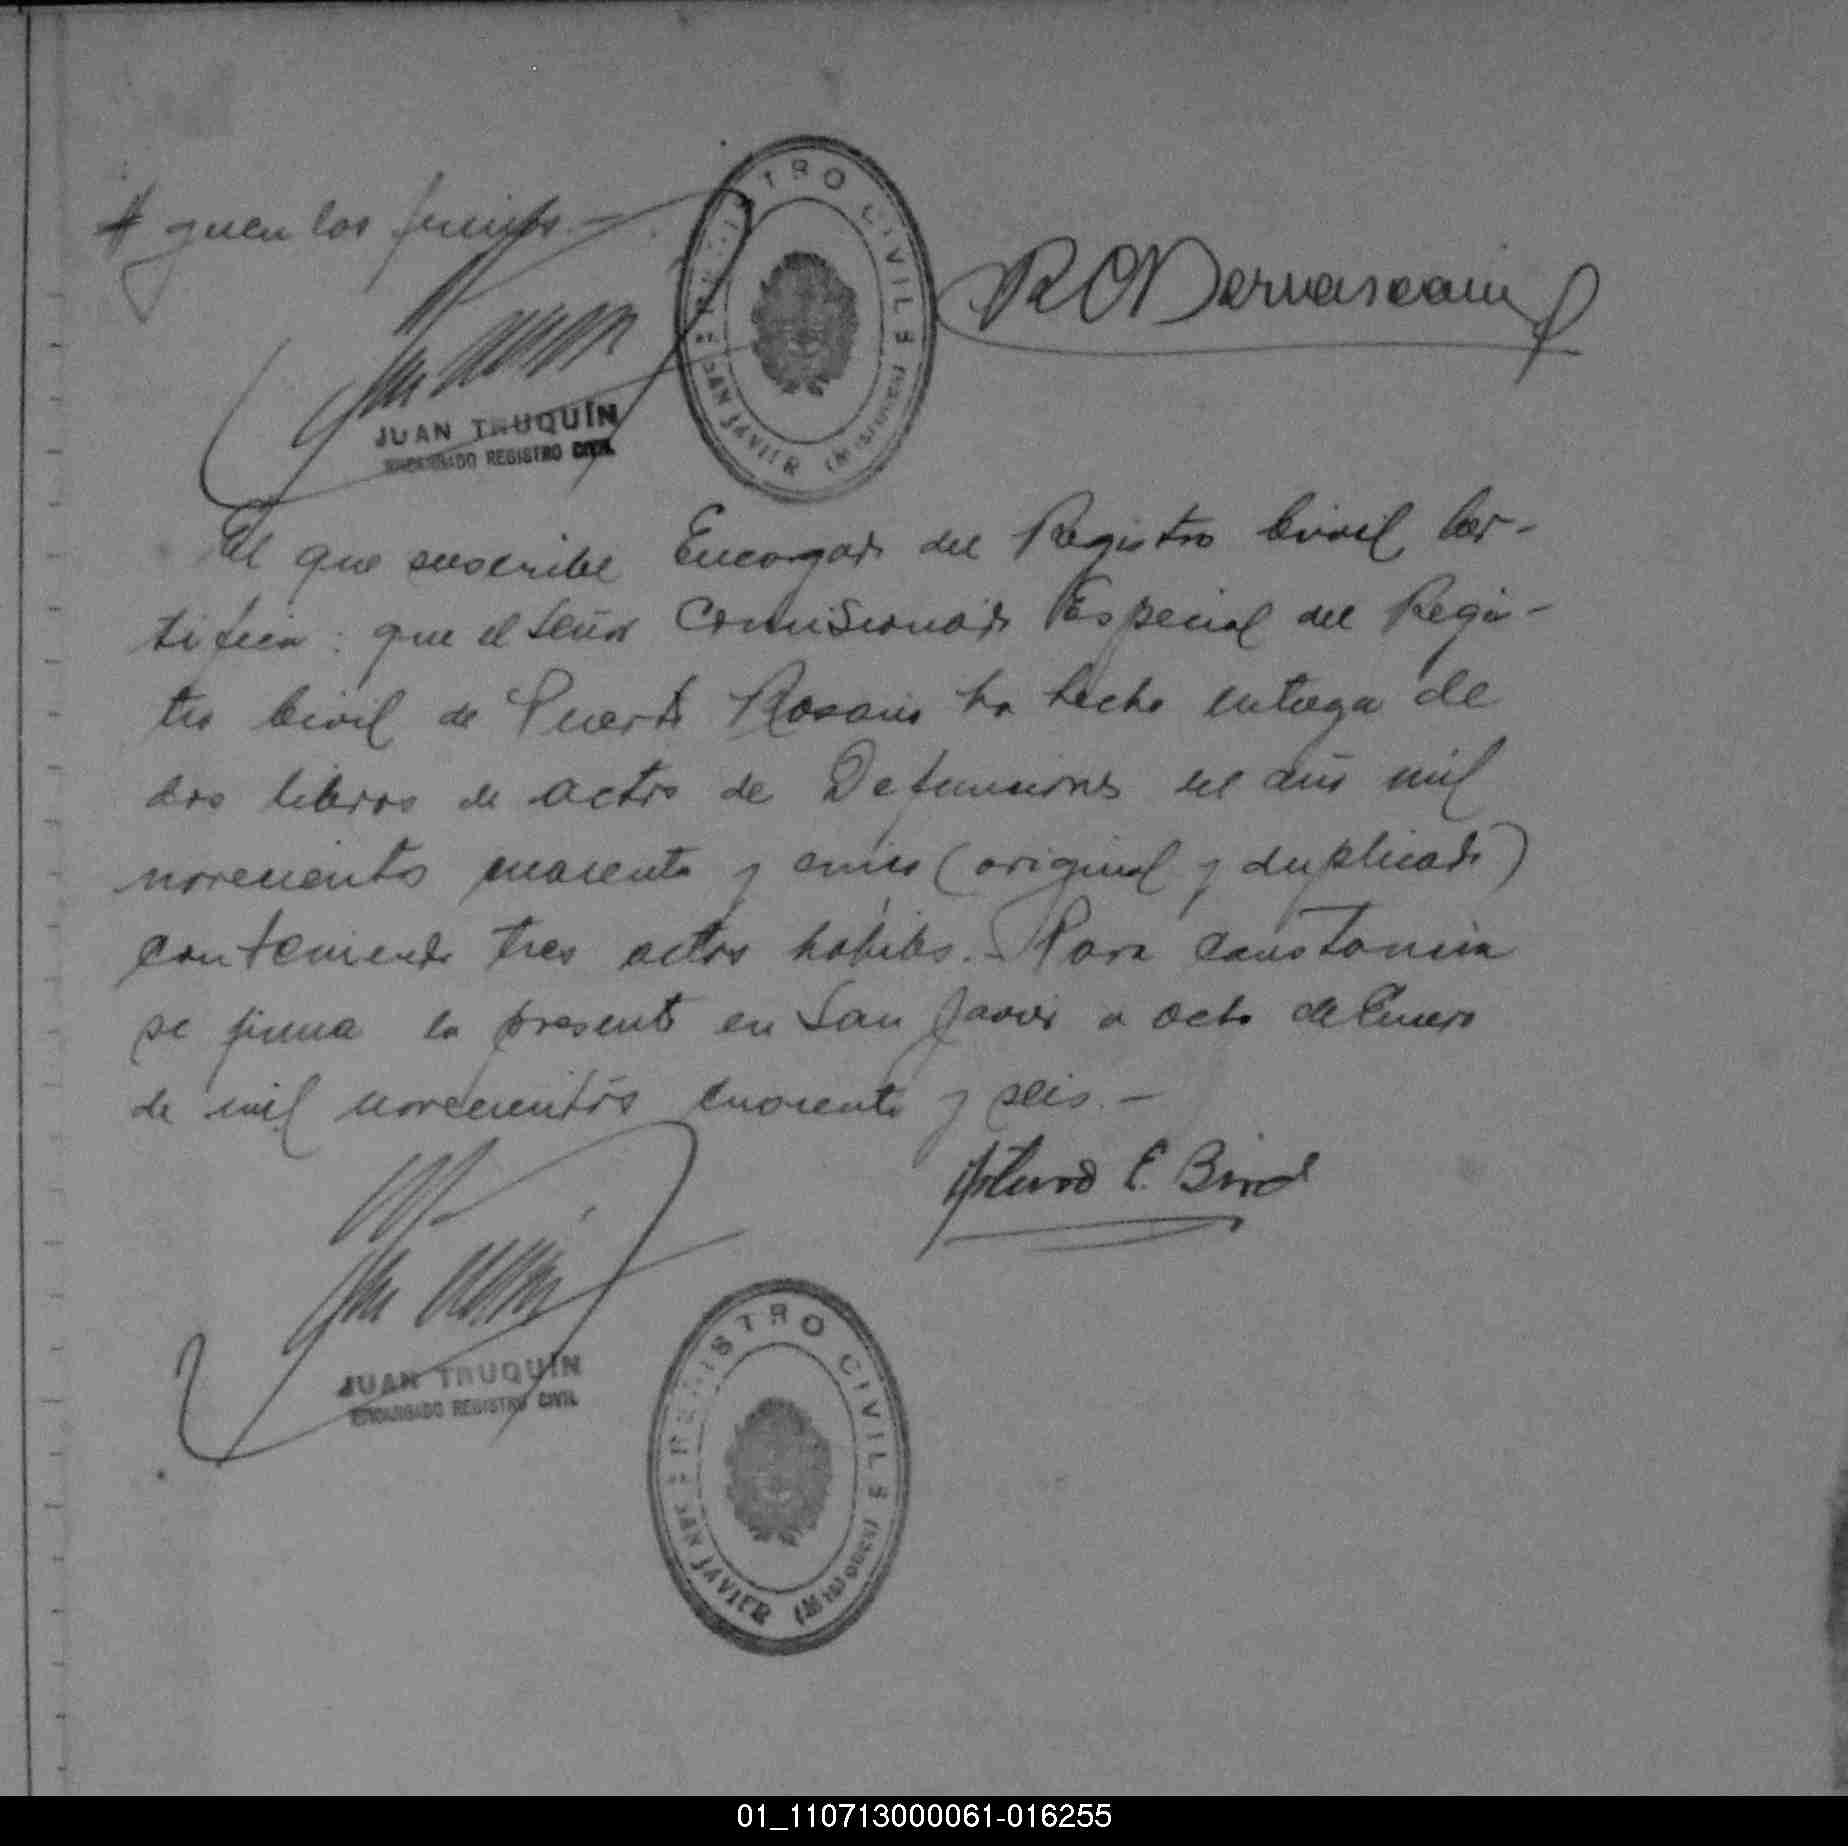 guen las firmas.—
R C Dervascain
REGISTRO CIVIL
SAN JAVIER (MISIONES)
JUAN TRUQUÍN
ENCARGADO REGISTRO CIVIL
El que suscribe Encargado del Registro Civil Cer-
tifica: que el Señor Comisionado Especial del Regis-
tro Civil de Puerto Rosario ha hecho entrega de
dos libros de actas de Defunciones del año mil
novecientos cuarenta y cinco (original y duplicado)
conteniendo tres actas hábiles.- Para constancia
se firma la presente en San Javier a ocho de Enero
de mil novecientos cuarenta y seis.—
Arturo E. Bird
JUAN TRUQUÍN
ENCARGADO REGISTRO CIVIL
REGISTRO CIVIL
SAN JAVIER (MISIONES)
01_110713000061-016255